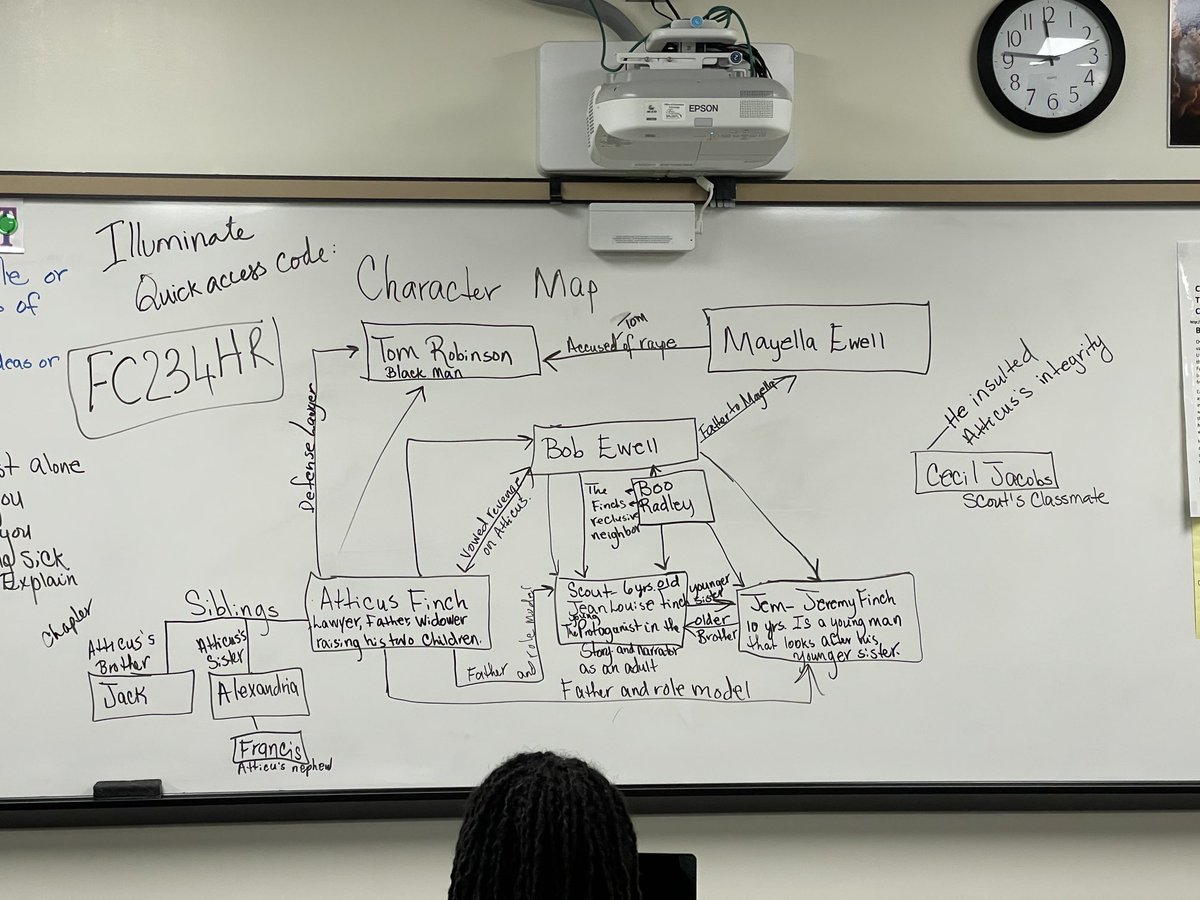 EPSON
12
1
2
3
4
5
6
7
8
9
10
11
le or
of
deas or
t alone
ou
you
ng sick
Explain
chapter
Illuminate
Quick access code:
FC234HR
Character Map
Tom Robinson
Black Man
Tom
Accused of rape
Mayella Ewell
Defense Lawyer
Father to Mayella
Bob Ewell
He insulted
Atticus's integrity
Cecil Jacobs
Scout's Classmate
Vowed revenge
on Atticus.
The
Finch's
reclusive
neighbor
Boo
Radley
Siblings
Atticus's
Brother
Jack
Atticus's
Sister
Alexandria
Francis
Atticus's nephew
Atticus Finch
Lawyer, Father, Widower
raising his two children.
Father and role model
Scout- 6 yrs. old
Jean Louise Finch
young
The Protagonist in the
Story and narrator
as an adult
younger
sister
older
Brother
Jem- Jeremy Finch
10 yrs. Is a young man
that looks after his
younger sister.
Father and role model